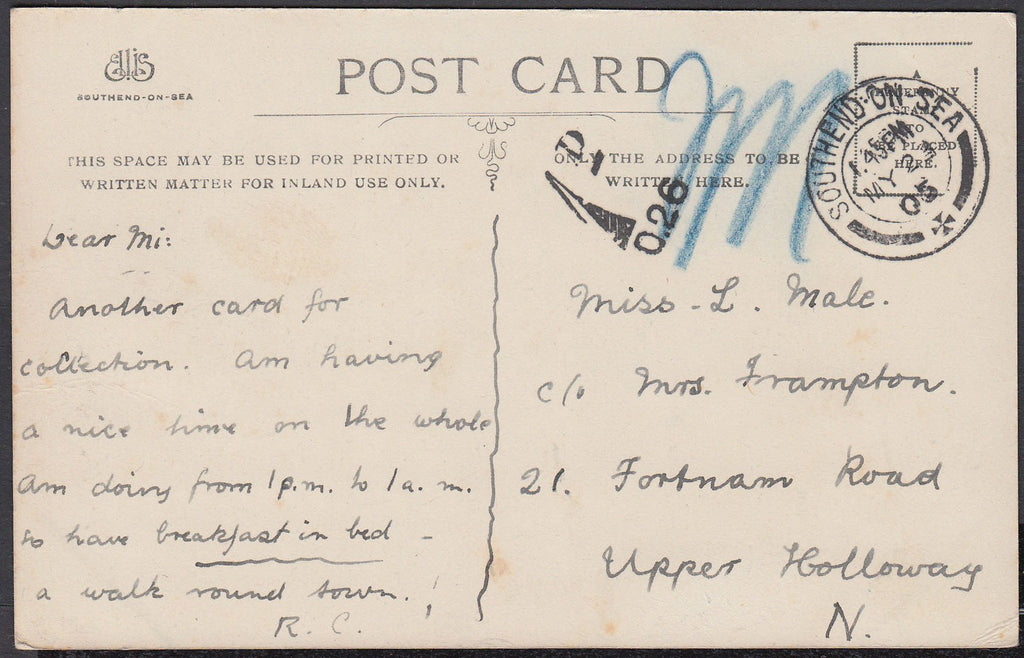 Ellis
SOUTHEND-ON-SEA
POST CARD
THIS SPACE MAY BE USED FOR PRINTED OR
WRITTEN MATTER FOR INLAND USE ONLY.
ONLY THE ADDRESS TO BE
WRITTEN HERE.
SOUTHEND-ON-SEA
MY
05
STAMP
TO
BE PLACED
HERE.
026
M
Dear Mi:
Another card for
collection. Am having
a nice time on the whole
Am doing from 1 p.m. to 1 a.m.
so have breakfast in bed -
a walk round town.!
R. C.
Miss. L. Male.
c/o Mrs. Frampton.
21. Fortnam Road
Upper Holloway
N.